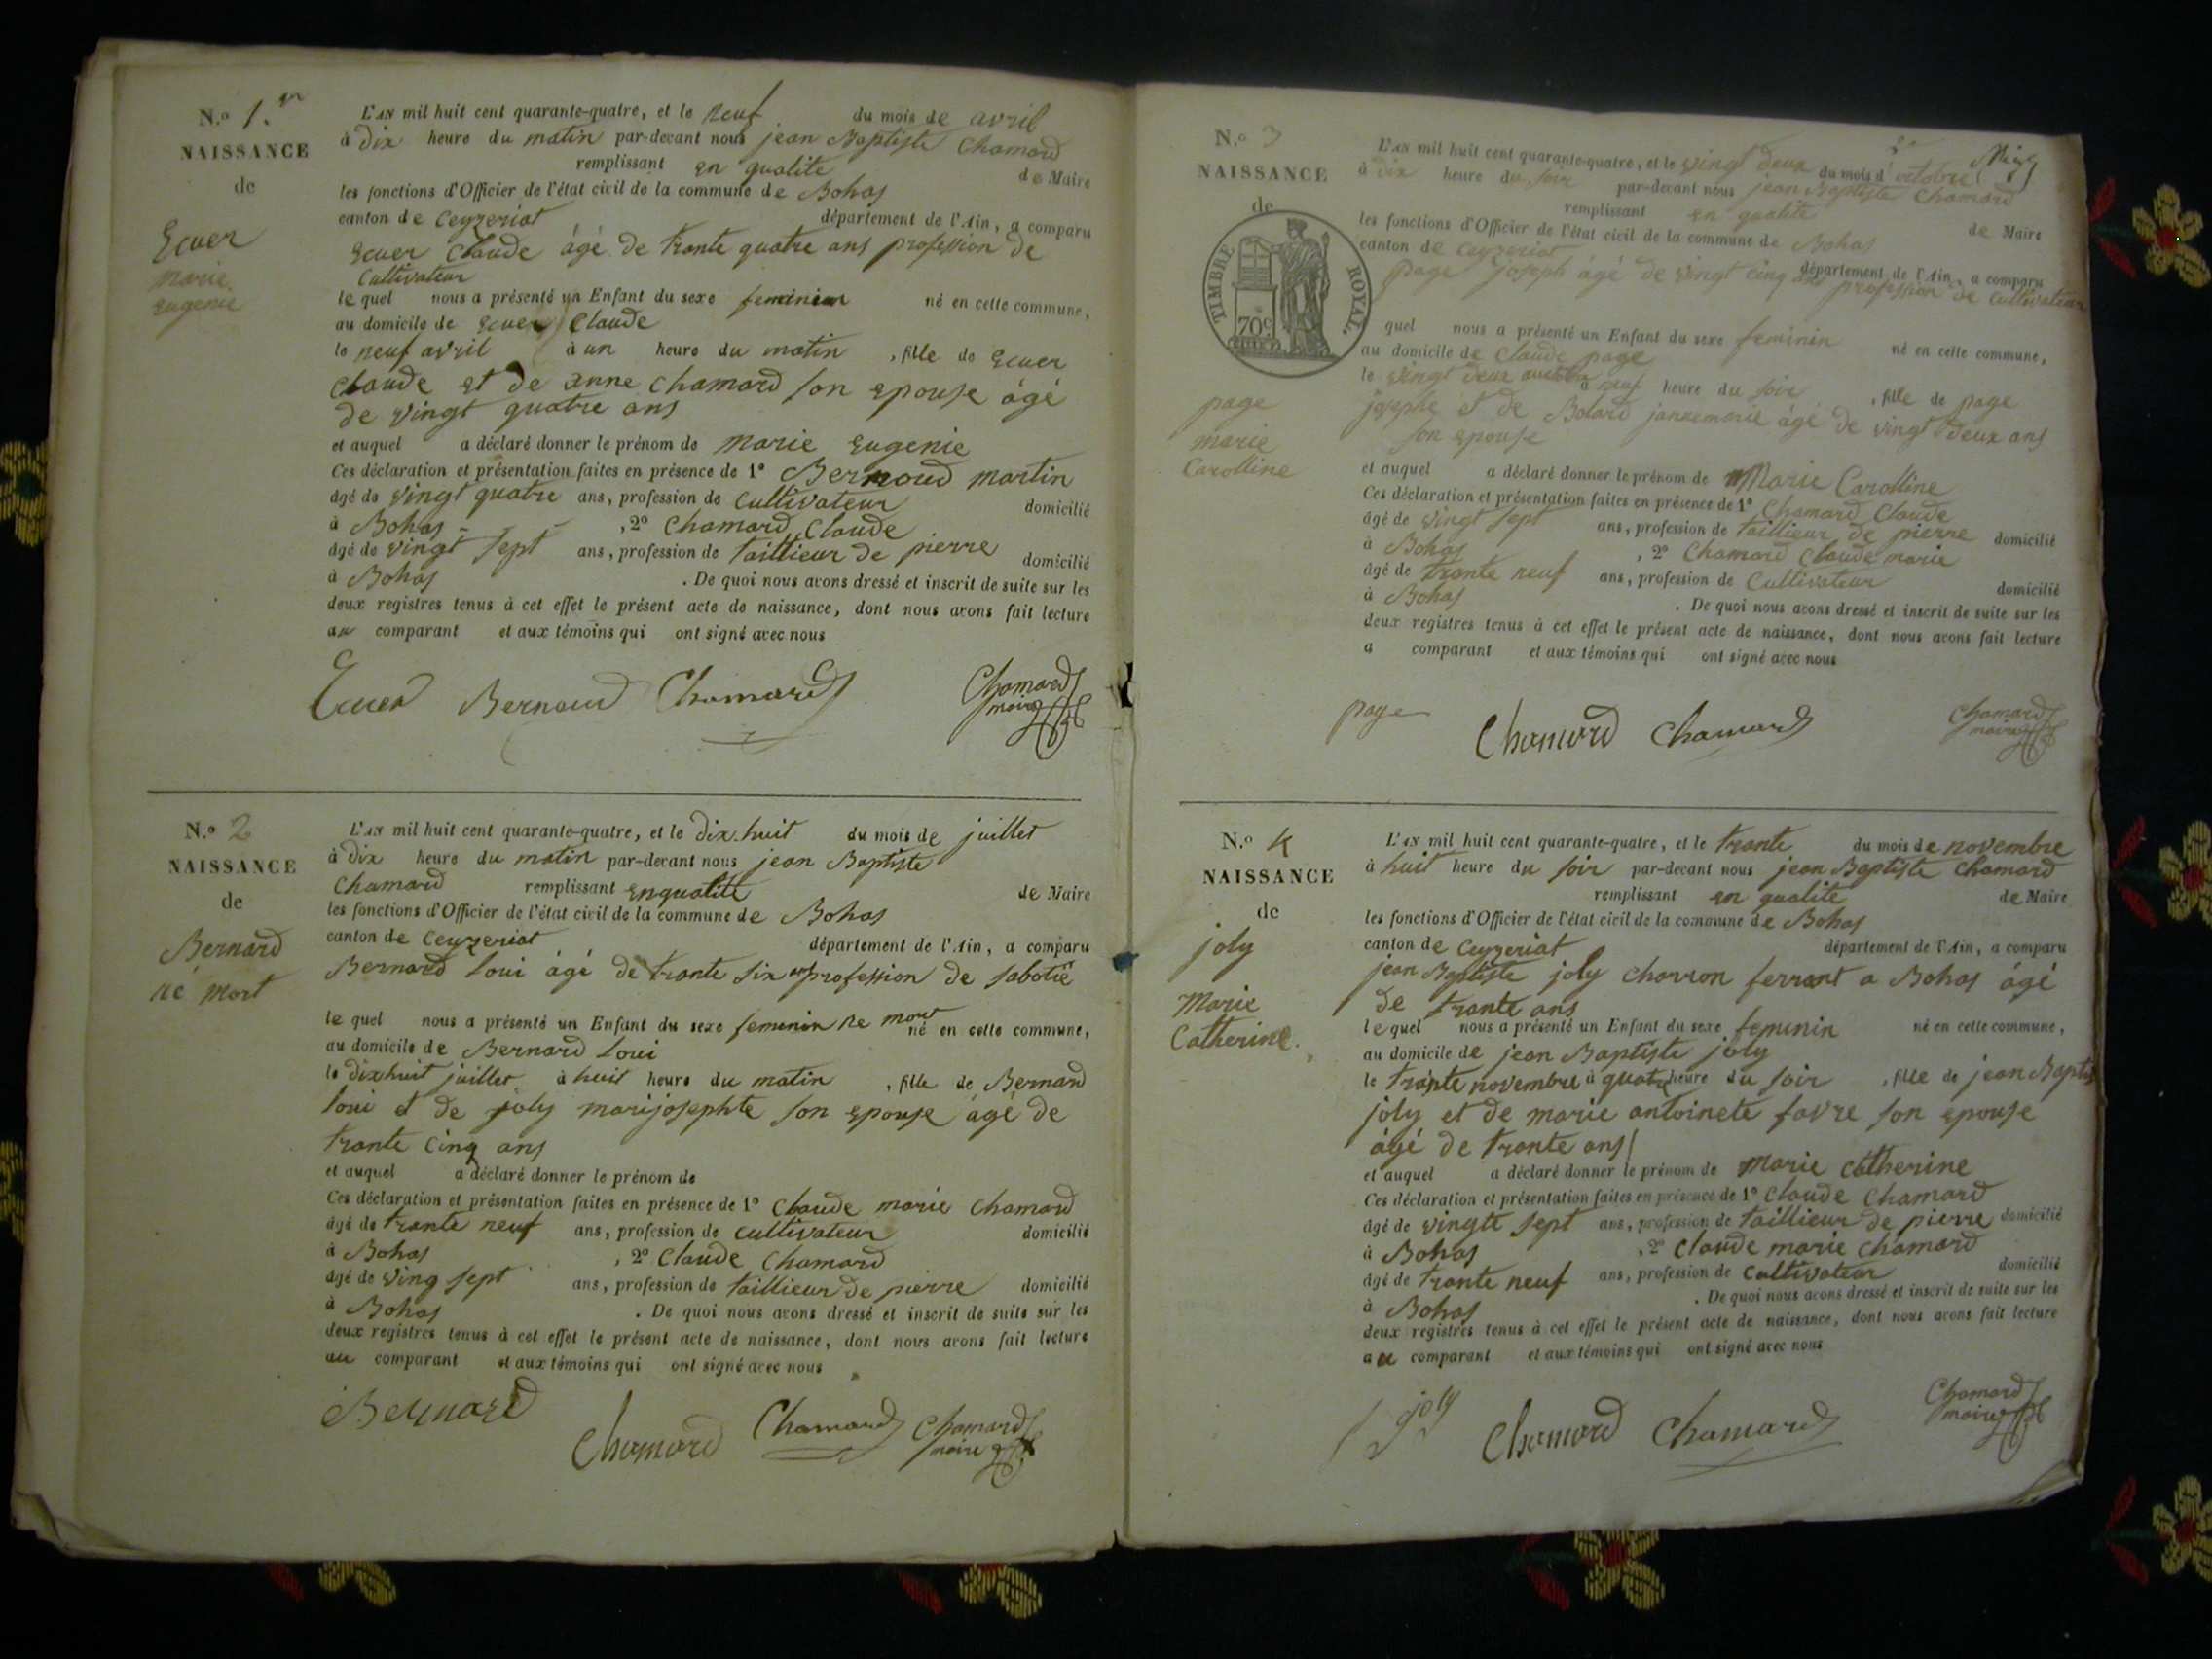 N.o 1.er
NAISSANCE
de
Ecuer
marie
eugenie
L'AN mil huit cent quarante-quatre, et le neuf du mois de avril
à dix heure du matin par-devant nous jean Baptiste Chamard
remplissant en qualite de Maire
les fonctions d'Officier de l'état civil de la commune de Bohas
canton de Ceyzeriat département de l'Ain, a comparu
Ecuer Claude âgé de trante quatre ans profession de
Cultivateur
lequel nous a présenté un Enfant du sexe feminin né en cette commune,
au domicile de Ecuer Claude
le neuf avril à un heure du matin , fille de Ecuer
Claude et de anne chamard son epouse âgé
de vingt quatre ans
et auquel a déclaré donner le prénom de marie eugenie
Ces déclaration et présentation faites en présence de 1° Bernoud martin
âgé de vingt quatre ans, profession de Cultivateur domicilié
à Bohas , 2° Chamard Claude
âgé de vingt sept ans, profession de taillieur de pierre domicilié
à Bohas . De quoi nous avons dressé et inscrit de suite sur les
deux registres tenus à cet effet le présent acte de naissance, dont nous avons fait lecture
au comparant et aux témoins qui ont signé avec nous
Ecuer Bernoud Chamard Chamard
maire
N.o 2
NAISSANCE
de
Bernard
né mort
L'AN mil huit cent quarante-quatre, et le dix-huit du mois de juillet
à dix heure du matin par-devant nous jean Baptiste
Chamard remplissant enqualite de Maire
les fonctions d'Officier de l'état civil de la commune de Bohas
canton de Ceyzeriat département de l'Ain, a comparu
Bernard loui âgé de trante six ans profession de sabotié
lequel nous a présenté un Enfant du sexe feminin ne mort né en cette commune,
au domicile de Bernard loui
le dixhuit juillet à huit heure du matin , fille de Bernard
loui et de joly marijosephte son epouse âgé de
trante cinq ans
et auquel a déclaré donner le prénom de
Ces déclaration et présentation faites en présence de 1° Claude marie chamard
âgé de trante neuf ans, profession de cultivateur domicilié
à Bohas , 2° Claude Chamard
âgé de ving sept ans, profession de taillieur de pierre domicilié
à Bohas . De quoi nous avons dressé et inscrit de suite sur les
deux registres tenus à cet effet le présent acte de naissance, dont nous avons fait lecture
au comparant et aux témoins qui ont signé avec nous
Bernard
Chamard Chamard Chamard
maire
N.o 3
NAISSANCE
de
TIMBRE ROYAL.
70c
page
marie
Carolline
L'AN mil huit cent quarante-quatre, et le vingt deux du mois d'octobre
à dix heure du soir par-devant nous jean Baptiste Chamard
remplissant en qualite de Maire
les fonctions d'Officier de l'état civil de la commune de Bohas
canton de Ceyzeriat département de l'Ain, a comparu
page joseph âgé de vingt cinq ans profession de cultivateur
quel nous a présenté un Enfant du sexe feminin né en cette commune,
au domicile de Claude page
le vingt deux à neuf heure du soir , fille de page
josephe et de Bolard jannemarie âgé de vingt deux ans
son epouse
et auquel a déclaré donner le prénom de Marie Carolline
Ces déclaration et présentation faites en présence de 1° Chamard Claude
âgé de vingt sept ans, profession de taillieur de pierre domicilié
à Bohas , 2° Chamard Claude marie
âgé de trante neuf ans, profession de Cultivateur domicilié
à Bohas . De quoi nous avons dressé et inscrit de suite sur les
deux registres tenus à cet effet le présent acte de naissance, dont nous avons fait lecture
a comparant et aux témoins qui ont signé avec nous
page Chamard Chamard Chamard
maire
N.o 4
NAISSANCE
de
joly
Marie
Catherine.
L'AN mil huit cent quarante-quatre, et le trante du mois de novembre
à huit heure du soir par-devant nous jean Baptiste Chamard
remplissant en qualite de Maire
les fonctions d'Officier de l'état civil de la commune de Bohas
canton de Ceyzeriat département de l'Ain, a comparu
jean Baptiste joly charron ferrant a Bohas âgé
de trante ans
lequel nous a présenté un Enfant du sexe feminin né en cette commune,
au domicile de jean Baptiste joly
le trante novembre à quatre heure du soir , fille de jean Baptis
joly et de marie antoinete favre son epouse
âgé de trante ans
et auquel a déclaré donner le prénom de marie catherine
Ces déclaration et présentation faites en présence de 1° Claude Chamard
âgé de vingte sept ans, profession de taillieur de pierre domicilié
à Bohas , 2° Claude marie chamard
âgé de trante neuf ans, profession de Cultivateur domicilié
à Bohas . De quoi nous avons dressé et inscrit de suite sur les
deux registres tenus à cet effet le présent acte de naissance, dont nous avons fait lecture
au comparant et aux témoins qui ont signé avec nous
joly Chamard Chamard Chamard
maire